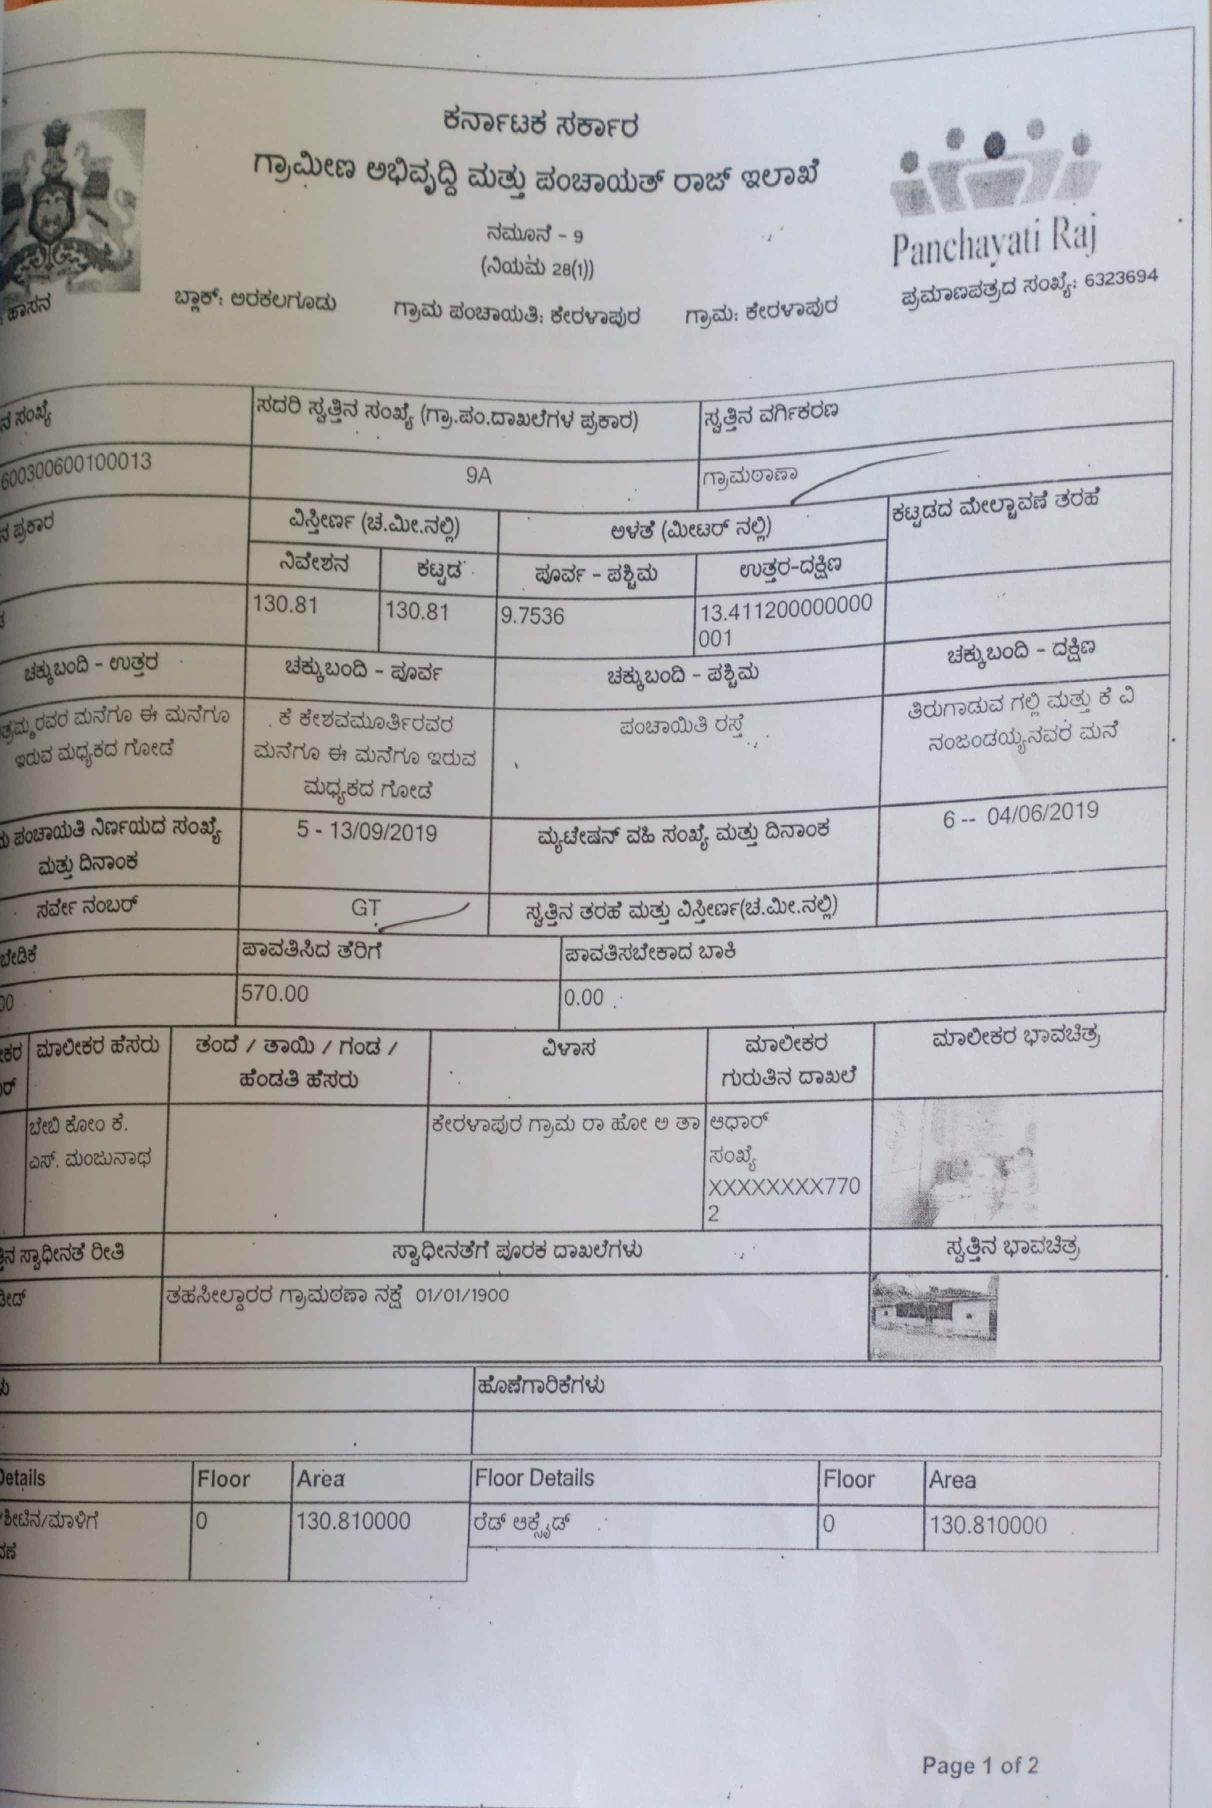 ಕರ್ನಾಟಕ ಸರ್ಕಾರ
ಗ್ರಾಮೀಣ ಅಭಿವೃದ್ಧಿ ಮತ್ತು ಪಂಚಾಯತ್ ರಾಜ್ ಇಲಾಖೆ
ನಮೂನೆ - 9
(ನಿಯಮ 28(1))
Panchayati Raj
ಹಾಸನ ಬ್ಲಾಕ್: ಅರಕಲಗೂಡು ಗ್ರಾಮ ಪಂಚಾಯತಿ: ಕೇರಳಾಪುರ ಗ್ರಾಮ: ಕೇರಳಾಪುರ ಪ್ರಮಾಣಪತ್ರದ ಸಂಖ್ಯೆ: 6323694
ನ ಸಂಖ್ಯೆ ಸದರಿ ಸ್ವತ್ತಿನ ಸಂಖ್ಯೆ (ಗ್ರಾ.ಪಂ.ದಾಖಲೆಗಳ ಪ್ರಕಾರ) ಸ್ವತ್ತಿನ ವರ್ಗಿಕರಣ
600300600100013 9A ಗ್ರಾಮಠಾಣಾ
ನ ಪ್ರಕಾರ ವಿಸ್ತೀರ್ಣ (ಚ.ಮೀ.ನಲ್ಲಿ) ಅಳತೆ (ಮೀಟರ್ ನಲ್ಲಿ) ಕಟ್ಟಡದ ಮೇಲ್ಚಾವಣಿ ತರಹೆ
ನಿವೇಶನ ಕಟ್ಟಡ ಪೂರ್ವ - ಪಶ್ಚಿಮ ಉತ್ತರ-ದಕ್ಷಿಣ
130.81 130.81 9.7536 13.411200000000
001
ಚಕ್ಕುಬಂದಿ - ಉತ್ತರ ಚಕ್ಕುಬಂದಿ - ಪೂರ್ವ ಚಕ್ಕುಬಂದಿ - ಪಶ್ಚಿಮ ಚಕ್ಕುಬಂದಿ - ದಕ್ಷಿಣ
ತ್ರಮ್ಮರವರ ಮನೆಗೂ ಈ ಮನೆಗೂ ಕೆ ಕೇಶವಮೂರ್ತಿರವರ ಪಂಚಾಯಿತಿ ರಸ್ತೆ ತಿರುಗಾಡುವ ಗಲ್ಲಿ ಮತ್ತು ಕೆ ವಿ
ಇರುವ ಮಧ್ಯಕದ ಗೋಡೆ ಮನೆಗೂ ಈ ಮನೆಗೂ ಇರುವ ನಂಜಂಡಯ್ಯನವರ ಮನೆ
ಮಧ್ಯಕದ ಗೋಡೆ
ಪಂಚಾಯತಿ ನಿರ್ಣಯದ ಸಂಖ್ಯೆ 5 - 13/09/2019 ಮ್ಯಟೇಷನ್ ವಹಿ ಸಂಖ್ಯೆ ಮತ್ತು ದಿನಾಂಕ 6 -- 04/06/2019
ಮತ್ತು ದಿನಾಂಕ
ಸರ್ವೇ ನಂಬರ್ GT ಸ್ವತ್ತಿನ ತರಹೆ ಮತ್ತು ವಿಸ್ತೀರ್ಣ(ಚ.ಮೀ.ನಲ್ಲಿ)
ಬೇಡಿಕೆ ಪಾವತಿಸಿದ ತೆರಿಗೆ ಪಾವತಿಸಬೇಕಾದ ಬಾಕಿ
00 570.00 0.00
ಮಾಲೀಕರ ಹೆಸರು ತಂದೆ / ತಾಯಿ / ಗಂಡ / ವಿಳಾಸ ಮಾಲೀಕರ ಮಾಲೀಕರ ಭಾವಚಿತ್ರ
ಹೆಂಡತಿ ಹೆಸರು ಗುರುತಿನ ದಾಖಲೆ
ಬೇಬಿ ಕೋಂ ಕೆ. ಕೇರಳಾಪುರ ಗ್ರಾಮ ರಾ ಹೋ ಅ ತಾ ಆಧಾರ್
ಎಸ್. ಮಂಜುನಾಥ ಸಂಖ್ಯೆ
XXXXXXXX770
2
ನ ಸ್ವಾಧೀನತೆ ರೀತಿ ಸ್ವಾಧೀನತೆಗೆ ಪೂರಕ ದಾಖಲೆಗಳು ಸ್ವತ್ತಿನ ಭಾವಚಿತ್ರ
ಡೀಡ್ ತಹಸೀಲ್ದಾರರ ಗ್ರಾಮಠಣಾ ನಕ್ಷೆ 01/01/1900
ಹೊಣೆಗಾರಿಕೆಗಳು
Details Floor Area Floor Details Floor Area
/ಶೀಟಿನ/ಮಾಳಿಗೆ 0 130.810000 ರೆಡ್ ಆಕ್ಸೈಡ್ 0 130.810000
Page 1 of 2